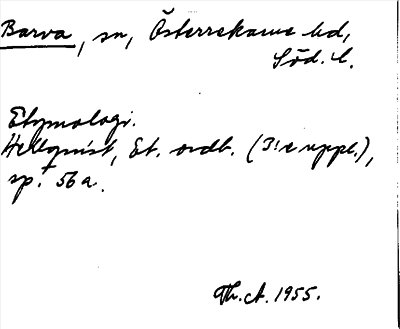 Barva, sn, Österrekarne hd,
Söd. l.
Etymologi.
Hellquist, Et. ordb. (3:e uppl.),
sp. 56 a.
Th. A. 1955.